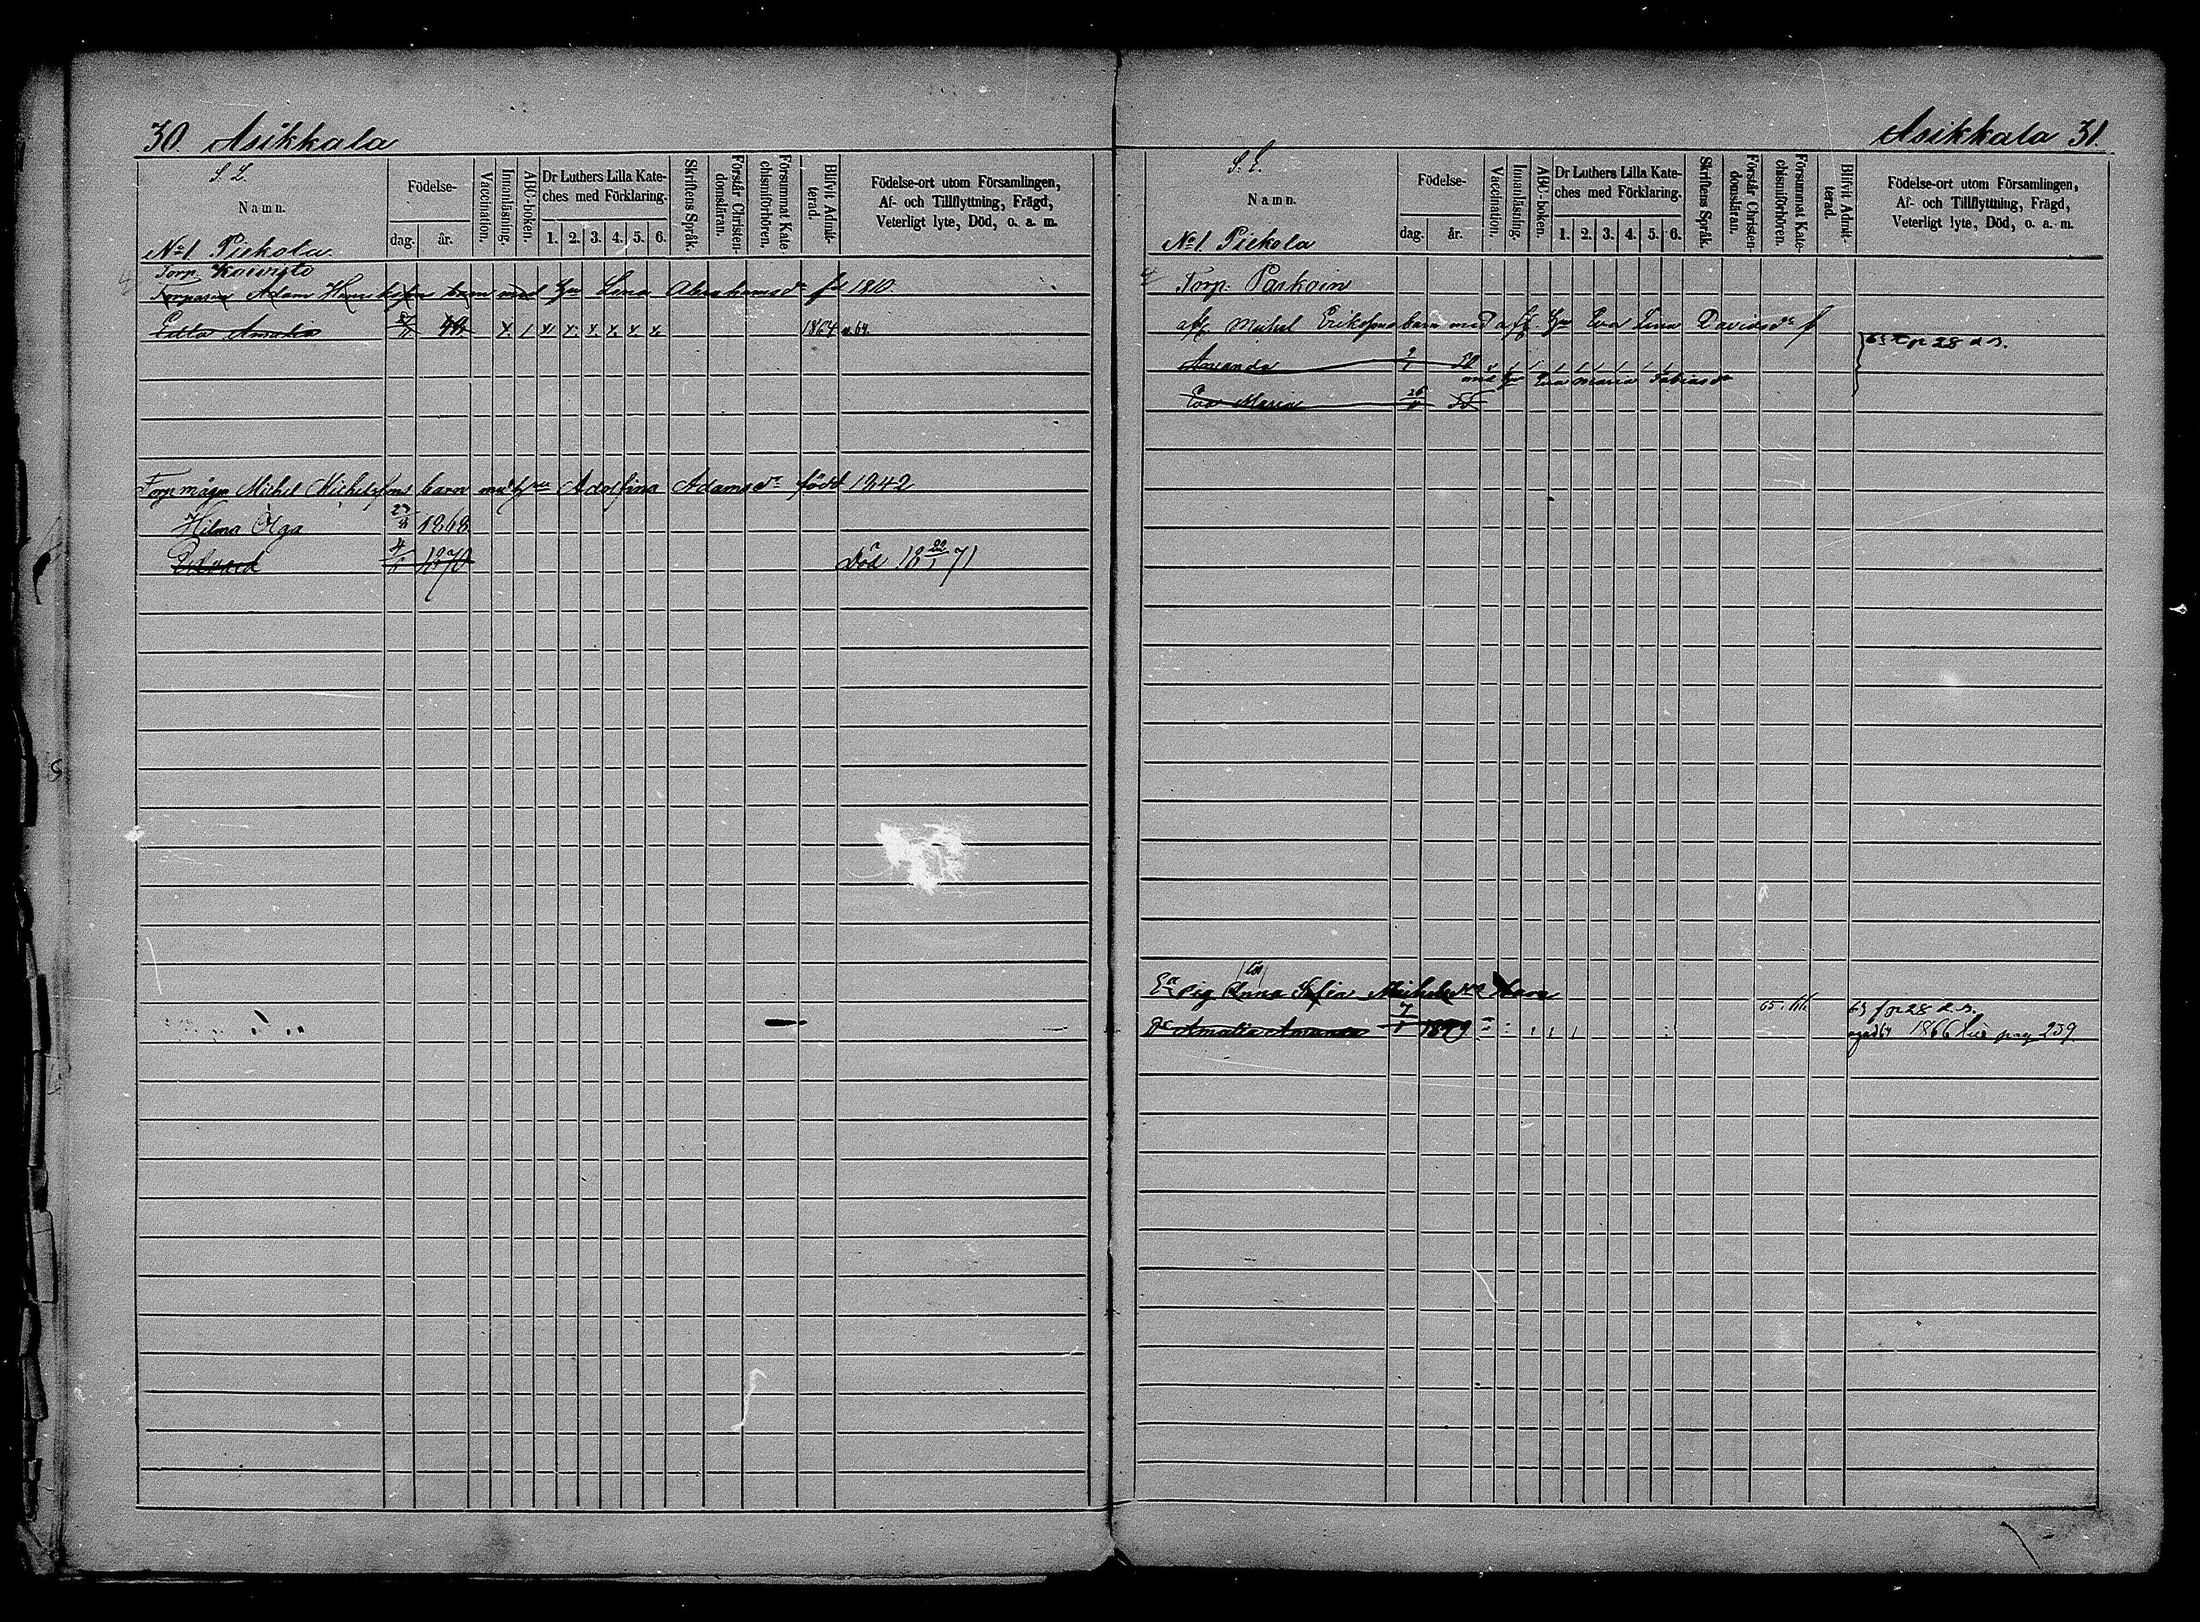 30. Asikkala
S. L.
Namn.
Födelse-
dag.
år.
Vaccination.
Innanläsning.
ABC-boken.
Dr Luthers Lilla Kate-
ches med Förklaring.
1. 2. 3. 4. 5. 6.
Skriftens Språk.
Förstår Christen-
domsläran.
Försummat Kate-
chismiförhören.
Blifvit Admit-
terad.
Födelse-ort utom Församlingen,
Af- och Tillflyttning, Frägd,
Veterligt lyte, Död, o. a. m.
No 1. Piekola
Torp. Koivisto
Torparen Adam barn med Hu Lina Abrahamsdr fd 1810
Edla Amalia 48 x. / x. x. x. x. x. x. 1864
Torp. mågen Michel Michelssons barn med Hu Adolfina Adamsdr född 1842
Hilma Olga 23/8 1868
Edvard 4/6 1870 Död 18 22/1 71
Asikkala 31.
S. L.
Namn.
Födelse-
dag.
år.
Vaccination.
Innanläsning.
ABC-boken.
Dr Luthers Lilla Kate-
ches med Förklaring.
1. 2. 3. 4. 5. 6.
Skriftens Språk.
Förstår Christen-
domsläran.
Försummat Kate-
chismiförhören.
Blifvit Admit-
terad.
Födelse-ort utom Församlingen,
Af- och Tillflyttning, Frägd,
Veterligt lyte, Död, o. a. m.
No 1. Piekola
Torp. Paskoin
Michel Erikssons barn med Hu Eva Lina Davidsdr f
Amanda
med Hu Eva Maria Fabiansdr
Eva Maria 26
pig Anna Sofia barn
65. 66.
63 f p 28 d. B.
Amalia Amanda 7/1 1849 1866 här pag 239.